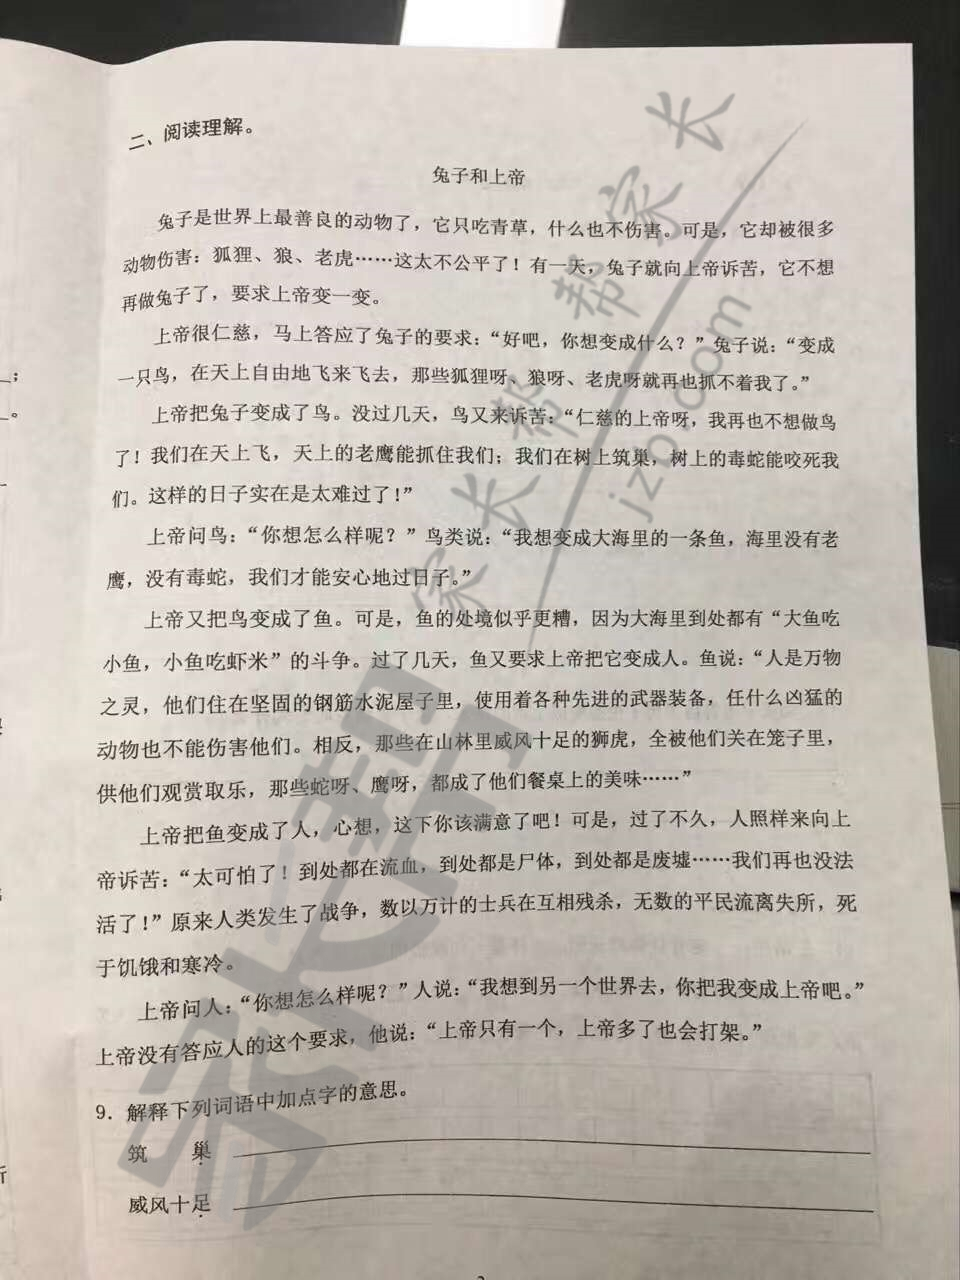 二、阅读理解。
兔子和上帝
兔子是世界上最善良的动物了，它只吃青草，什么也不伤害。可是，它却被很多
动物伤害：狐狸、狼、老虎……这太不公平了！有一天，兔子就向上帝诉苦，它不想
再做兔子了，要求上帝变一变。
上帝很仁慈，马上答应了兔子的要求：“好吧，你想变成什么？”兔子说：“变成
一只鸟，在天上自由地飞来飞去，那些狐狸呀、狼呀、老虎呀就再也抓不着我了。”
上帝把兔子变成了鸟。没过几天，鸟又来诉苦：“仁慈的上帝呀，我再也不想做鸟
了！我们在天上飞，天上的老鹰能抓住我们；我们在树上筑巢，树上的毒蛇能咬死我
们。这样的日子实在是太难过了！”
上帝问鸟：“你想怎么样呢？”鸟类说：“我想变成大海里的一条鱼，海里没有老
鹰，没有毒蛇，我们才能安心地过日子。”
上帝又把鸟变成了鱼。可是，鱼的处境似乎更糟，因为大海里到处都有“大鱼吃
小鱼，小鱼吃虾米”的斗争。过了几天，鱼又要求上帝把它变成人。鱼说：“人是万物
之灵，他们住在坚固的钢筋水泥屋子里，使用着各种先进的武器装备，任什么凶猛的
动物也不能伤害他们。相反，那些在山林里威风十足的狮虎，全被他们关在笼子里，
供他们观赏取乐，那些蛇呀、鹰呀，都成了他们餐桌上的美味……”
上帝把鱼变成了人，心想，这下你该满意了吧！可是，过了不久，人照样来向上
帝诉苦：“太可怕了！到处都在流血，到处都是尸体，到处都是废墟……我们再也没法
活了！”原来人类发生了战争，数以万计的士兵在互相残杀，无数的平民流离失所，死
于饥饿和寒冷。
上帝问人：“你想怎么样呢？”人说：“我想到另一个世界去，你把我变成上帝吧。”
上帝没有答应人的这个要求，他说：“上帝只有一个，上帝多了也会打架。”
9．解释下列词语中加点字的意思。
筑 巢
威风十足
家长帮
家长帮
jzb.com